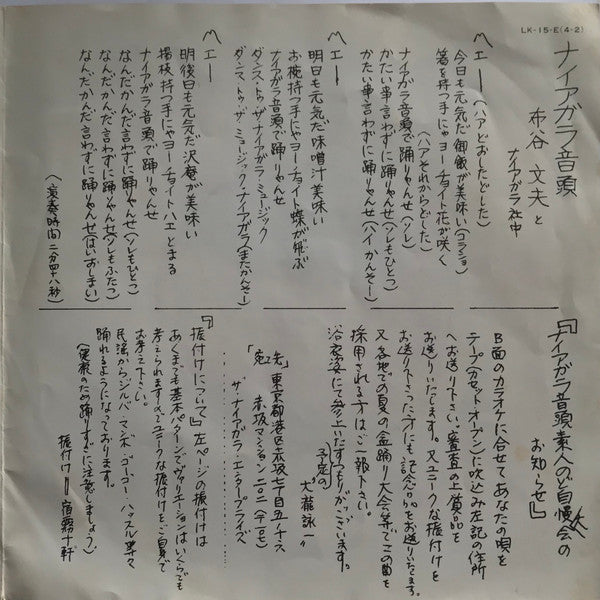 LK-15-E(4-2)
ナイアガラ音頭
布谷文夫と
ナイアガラ社中
(ハアどおしたどした)
エー
今日も元気だ御飯が美味い(コラショ)
箸を持つ手にゃヨーチョイト花が咲く
(ハアそれからどした)
ナイアガラ音頭で踊りゃんせ(ソレ)
かたい事言わずに踊りゃんせ(ソレもひとつ)
かたい事言わずに踊りゃんせ(ハイかんそー)
エー
明日も元気だ味噌汁美味い
お椀持つ手にゃヨーチョイト蝶が飛ぶ
ナイアガラ音頭で踊りゃんせ
ダンス・トゥ・ザ・ナイアガラ・ミュージック
ダンス・トゥ・ザ・ミュージック・ナイアガラ(またかんそー)
エー
明後日も元気だ沢庵が美味い
楊枝持つ手にゃヨーチョイトハエとまる
ナイアガラ音頭で踊りゃんせ
なんだかんだ言わずに踊りゃんせ(ソレもひとつ)
なんだかんだ言わずに踊りゃんせ(ソレもふたつ)
なんだかんだ言わずに踊りゃんせ(はいおしまい)
(演奏時間 二分四十八秒)
『ナイアガラ音頭素人のど自慢大会の
お知らせ』
B面のカラオケに合せてあなたの唄を
テープ(カセットオープン)に吹込み左記の住所
へお送り下さい。審査の上賞品を
お送りいたします。又ユニークな振付けを
お送り下さった方にも記念品をお送りいたします。
又各地での夏の盆踊り大会等でこの曲を
採用される方はご一報下さい。
浴衣姿にて参上いたす
予定の
大瀧詠一
宛先 東京都港区赤坂七丁目五ノ
赤坂マンション
ザ・ナイアガラ・エンタープライズへ
『振付けについて』左ページの振付けは
あくまでも基本パターンでヴァリエーションはいくらでも
考えられます。ユニークな振付けをご自身で
お考え下さい。
民謡からジルバ・マンボ・ゴーゴー・ハッスル等々
踊れるようになっております。
(健康のため踊りすぎに注意しましょう)
振付け＝宿霧十軒